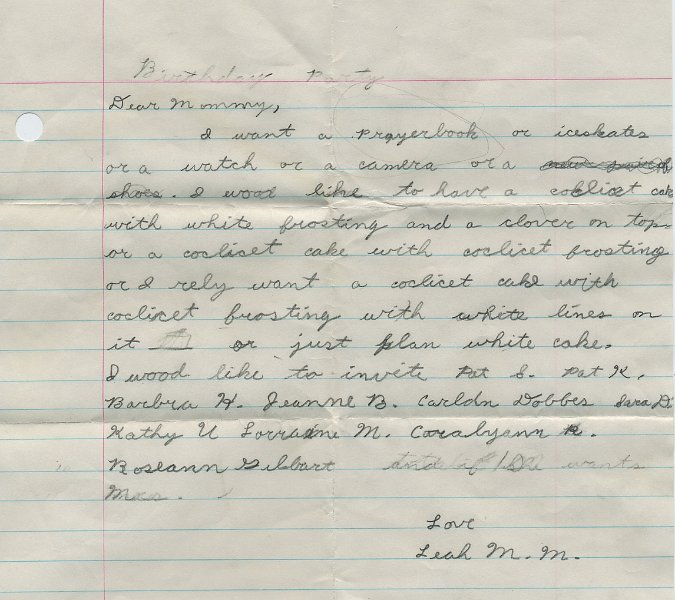 Birthday Party
Dear Mommy,
I want a Prayerbook or iceskates
or a watch or a camera or a
shoes. I wood like to have a coclicet cake
with white frosting and a clover on top.
or a coclicet cake with coclicet frosting
or I rely want a coclicet cake with
coclicet frosting with white lines on
it or just plan white cake.
I wood like to invite Pat S. Pat K.
Barbra H. Jeanne B. Carldn Dobbes Sara D.
Kathy U Lorraine M. Coralyann R.
Roseann Gilbart and if wants
Love
Leah M. M.